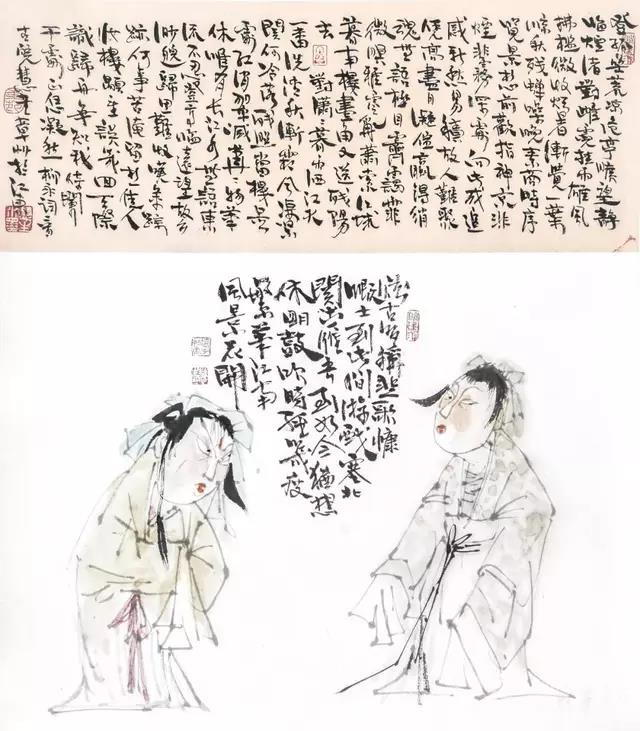 登孤垒荒凉危亭旷望静
临烟渚对雌霓挂雨雄风
拂槛微收烦暑渐觉一叶
惊秋残蝉噪晚素商时序
览景想前欢指神京非
烟非雾深处向此成追
感新愁易积故人难聚
凭高尽日凝伫赢得消
魂无语极目霁霭霏
微暝鸦零乱萧索江城
暮南楼画角又送残阳
去 对潇潇暮雨洒江天
一番洗清秋渐霜风凄紧
关河冷落残照当楼是
处红衰翠减苒苒物华
休唯有长江水无语东
流不忍登高临远望故乡
渺邈归思难收叹年来踪
迹何事苦淹留想佳人
妆楼颙望误几回天际
识归舟争知我倚阑
干处正恁凝愁 柳永词二
古 悲歌慷
慨士到此间游戏塞北
关山雁去到如今犹想
休明鼓吹时经几度
繁华江南
风景花开